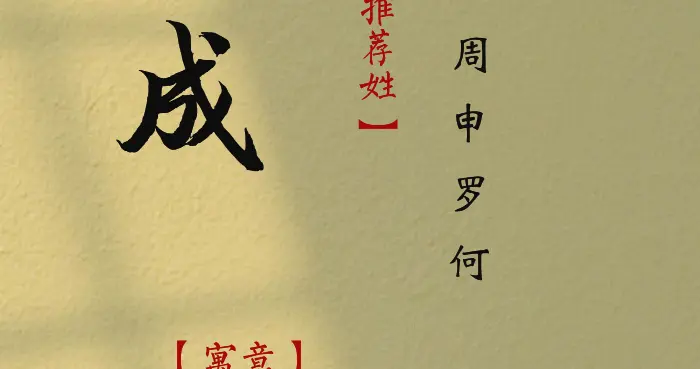 成
推荐姓】
周申罗何
【寓意】